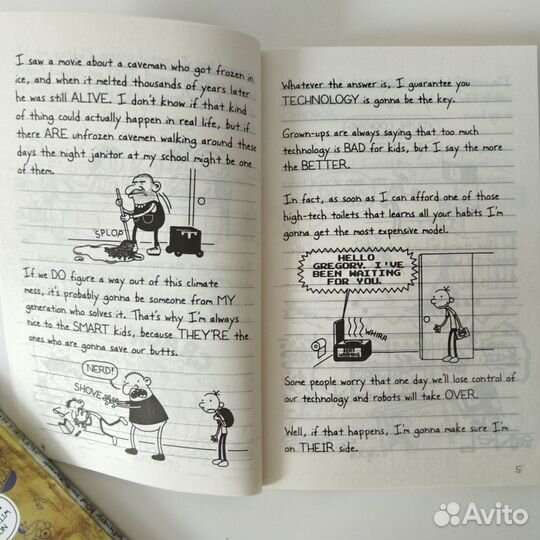 I saw a movie about a caveman who got frozen in
ice, and when it melted thousands of years later
he was still ALIVE. I don't know if that kind
of thing could actually happen in real life, but if
there ARE unfrozen cavemen walking around these
days the night janitor at my school might be one
of them.
SPLOP
If we DO figure a way out of this climate
mess, it's probably gonna be someone from MY
generation who solves it. That's why I'm always
nice to the SMART kids, because THEY'RE the
ones who are gonna save our butts.
NERD!
SHOVE
4
Whatever the answer is, I guarantee you
TECHNOLOGY is gonna be the key.
Grown-ups are always saying that too much
technology is BAD for kids, but I say the more
the BETTER.
In fact, as soon as I can afford one of those
high-tech toilets that learns all your habits I'm
gonna get the most expensive model.
HELLO
GREGORY. I'VE
BEEN WAITING
FOR YOU.
WHIRR
SEAT
WARMING
Some people worry that one day we'll lose control of
our technology and robots will take OVER.
Well, if that happens, I'm gonna make sure I'm
on THEIR side.
5
Avito